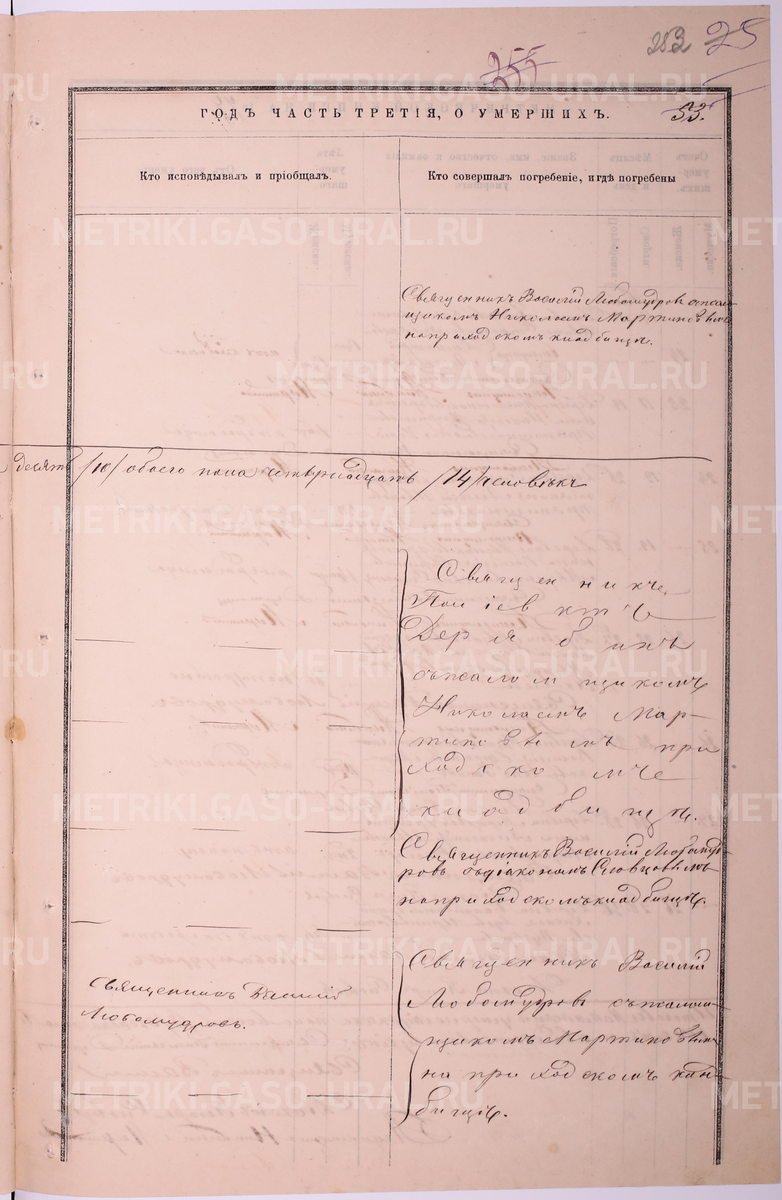 283 25
255
53.
ГОДЪ ЧАСТЬ ТРЕТІЯ, О УМЕРШИХЪ.
Кто исповѣдывалъ и пріобщалъ.
Кто совершалъ погребеніе, и гдѣ погребены
Священникъ Василій Любомудровъ съ псалом-
щикомъ Николаемъ Мартиновымъ
на приходскомъ кладбищѣ.
десять /10/ обоего пола четырнадцать /14/ человѣкъ
Священникъ
Дерябинъ
съ псаломщикомъ
Николаемъ Мар-
тиновымъ при
ходскомъ
кладбищѣ.
Священникъ Василій Любомуд
ровъ съ діакономъ
на приходскомъ кладбищѣ.
Священникъ Василій
Любомудровъ съ псалом-
щикомъ Мартиновымъ
на приходскомъ клад-
бищѣ.
Священникъ Василій
Любомудровъ.
METRIKI.GASO-URAL.RU